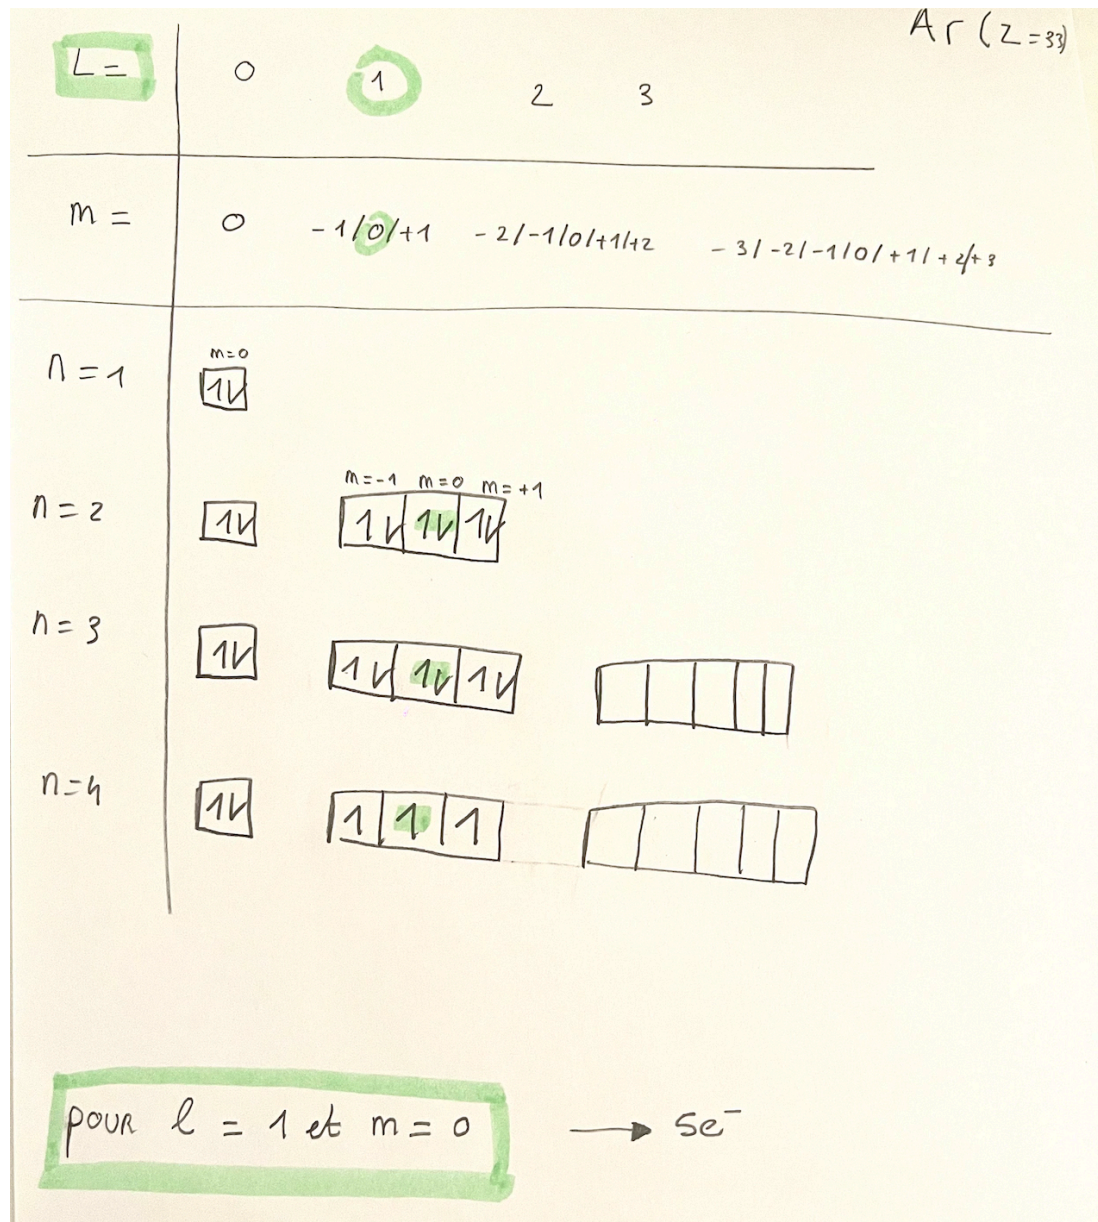 Ar (Z=33)
L = 0 1 2 3
m = 0 -1/0/+1 -2/-1/0/+1/+2 -3/-2/-1/0/+1/+2/+3
m=0
n = 1 1v
m=-1 m=0 m=+1
n = 2 1v 1v 1v 1v
n = 3 1v 1v 1v 1v
n=4 1v 1 1 1
pour l = 1 et m = 0 → 5e⁻